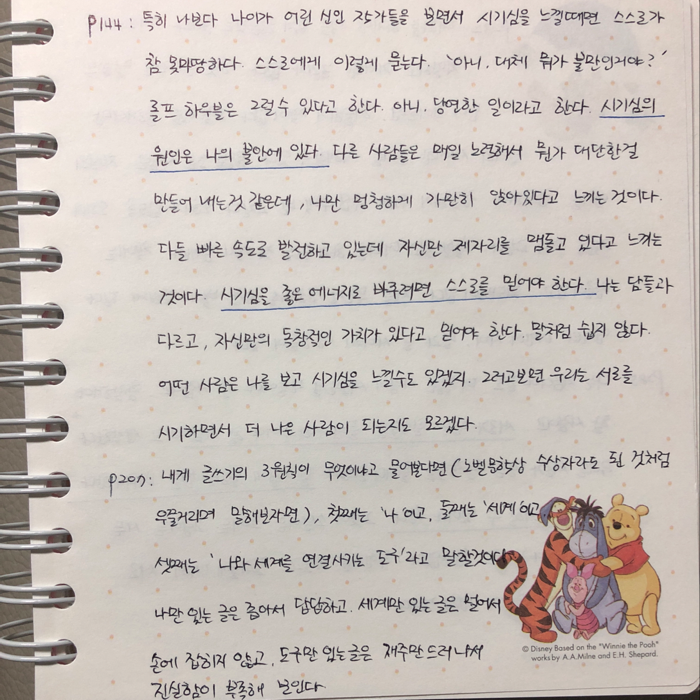 P144: 특히 나보다 나이가 어린 신인 작가들을 보면서 시기심을 느낄때면 스스로가
참 못마땅하다. 스스로에게 이렇게 묻는다. '아니. 대체 뭐가 불만인거야?'
롤프 하우블은 그럴수 있다고 한다. 아니. 당연한 일이라고 한다. 시기심의
원인은 나의 불안에 있다. 다른 사람들은 매일 노력해서 뭔가 대단한걸
만들어 내는것 같은데, 나만 멍청하게 가만히 앉아있다고 느끼는 것이다.
다들 빠른 속도로 발전하고 있는데 자신만 제자리를 맴돌고 있다고 느끼는
것이다. 시기심을 좋은 에너지로 바꾸려면 스스로를 믿어야 한다. 나는 남들과
다르고, 자신만의 독창적인 가치가 있다고 믿어야 한다. 말처럼 쉽지 않다.
어떤 사람은 나를 보고 시기심을 느낄수도 있겠지. 그러고보면 우리는 서로를
시기하면서 더 나은 사람이 되는지도 모르겠다.
P207: 내게 글쓰기의 3원칙이 무엇이냐고 물어본다면 (노벨문학상 수상자라도 된 것처럼
우쭐거리며 말해보자면), 첫째는 '나'이고, 둘째는 '세계'이고
셋째는 '나와 세계를 연결시키는 도구'라고 말할것이다
나만 있는 글은 좁아서 답답하고. 세계만 있는 글은 멀어서
손에 잡히지 않고, 도구만 있는글은 재주만 드러나서
진실함이 부족해 보인다.
© Disney Based on the "Winnie the Pooh"
works by A.A.Milne and E.H. Shepard.